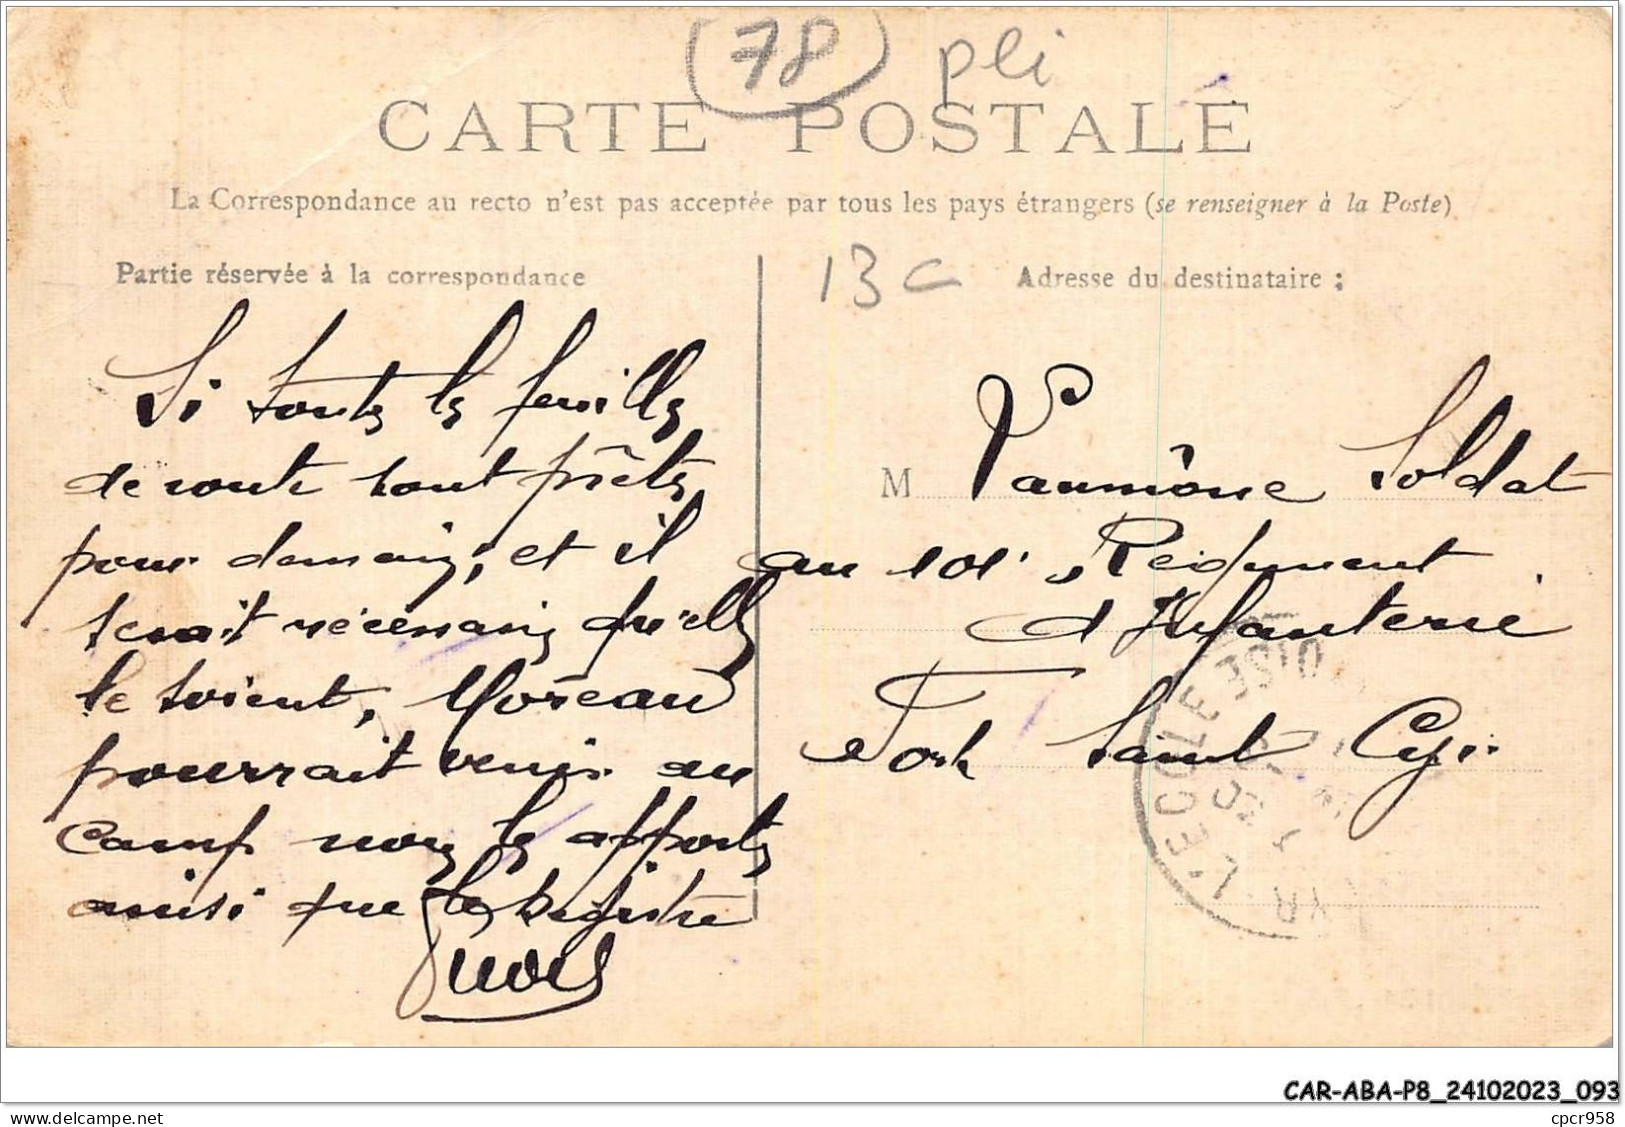 (78) pli
CARTE POSTALE
La Correspondance au recto n'est pas acceptée par tous les pays étrangers (se renseigner à la Poste)
Partie réservée à la correspondance
13 c
Adresse du destinataire :
Si toutes les feuilles
de route sont prêtes
pour demain, et il
serait nécessaire qu'elles
le soient, Moreau
pourrait venir au
camp nous les apporter
ainsi que le registre
M Vaumône Soldat
au 101e Régiment
d'Infanterie
Fort Saint Cyr
CYR-L'ECOLE S-OISE
CAR-ABA-P8_24102023_093
cpcr958
delcampe.net